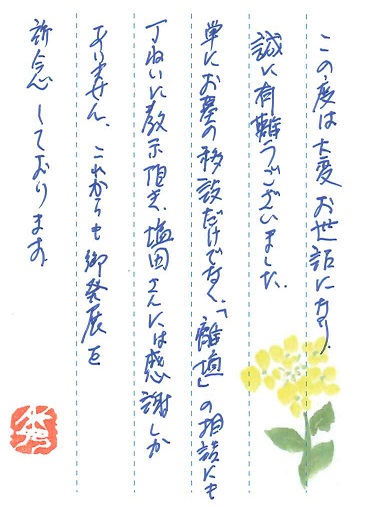 この度は大変お世話になり、
誠に有難うございました。
単にお墓の移設だけでなく、「離壇」の相談にも
丁ねいに教示頂き、塩田さんには感謝しか
ありません、これからも御発展を
祈念しております。